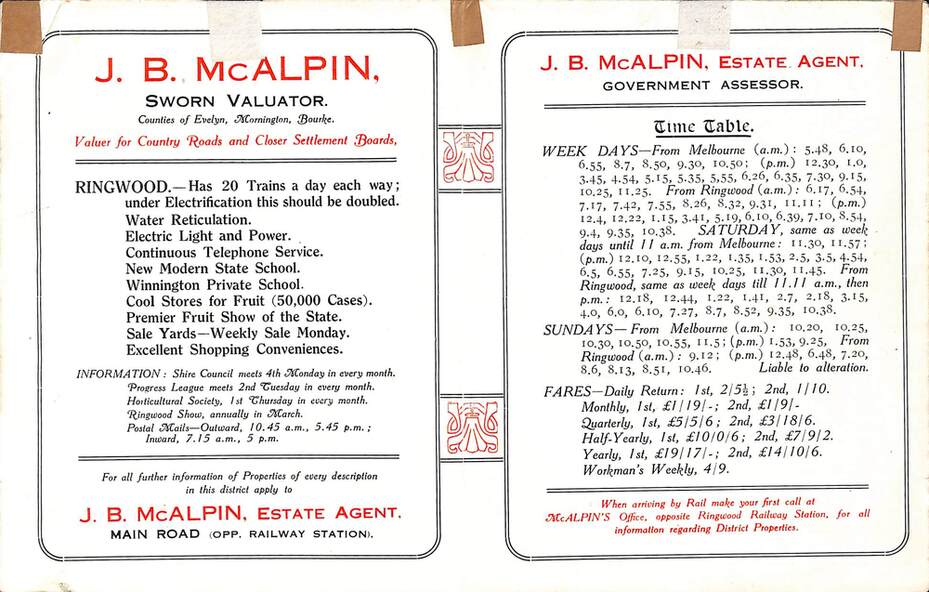 J. B. McALPIN,
SWORN VALUATOR.
Counties of Evelyn, Mornington, Bourke.
Valuer for Country Roads and Closer Settlement Boards,
RINGWOOD.—Has 20 Trains a day each way;
under Electrification this should be doubled.
Water Reticulation.
Electric Light and Power.
Continuous Telephone Service.
New Modern State School.
Winnington Private School.
Cool Stores for Fruit (50,000 Cases).
Premier Fruit Show of the State.
Sale Yards—Weekly Sale Monday.
Excellent Shopping Conveniences.
INFORMATION: Shire Council meets 4th Monday in every month.
Progress League meets 2nd Tuesday in every month.
Horticultural Society, 1st Thursday in every month.
Ringwood Show, annually in March.
Postal Mails—Outward, 10.45 a.m., 5.45 p.m.;
Inward, 7.15 a.m., 5 p.m.
For all further information of Properties of every description
in this district apply to
J. B. McALPIN, ESTATE AGENT.
MAIN ROAD (OPP. RAILWAY STATION).
J. B. McALPIN, ESTATE AGENT.
GOVERNMENT ASSESSOR.
Time Table.
WEEK DAYS—From Melbourne (a.m.): 5.48, 6.10,
6.55, 8.7, 8.50, 9.30, 10.50; (p.m.) 12.30, 1.0,
3.45, 4.54, 5.15, 5.35, 5,55, 6.26, 6.35, 7.30, 9.15,
10.25, 11.25. From Ringwood (a.m.): 6.17, 6.54,
7.17, 7.42, 7.55, 8.26, 8.32, 9.31, 11.11; (p.m.)
12.4, 12.22, 1.15, 3.41, 5.19, 6.10, 6.39, 7.10, 8.54,
9.4, 9.35, 10.38. SATURDAY, same as week
days until 11 a.m. from Melbourne: 11.30, 11.57;
(p.m.) 12.10, 12.55, 1.22, 1.35, 1.53, 2.5, 3.5, 4.54,
6.5, 6.55, 7.25, 9.15, 10.25, 11.30, 11.45. From
Ringwood, same as week days till 11.11 a.m., then
p.m.: 12.18, 12.44, 1.22, 1.41, 2.7, 2.18, 3.15,
4.0, 6.0, 6.10, 7.27, 8.7, 8.52, 9.35, 10.38.
SUNDAYS—From Melbourne (a.m.): 10.20, 10.25,
10.30, 10.50, 10.55, 11.5; (p.m.) 1.53, 9.25, From
Ringwood (a.m.): 9.12; (p.m.) 12.48, 6.48, 7.20,
8.6, 8.13, 8.51, 10.46. Liable to alteration.
FARES—Daily Return: 1st, 2/5½; 2nd, 1/10.
Monthly, 1st, £1/19/-; 2nd, £1/9/-
Quarterly, 1st, £5/5/6; 2nd, £3/18/6.
Half-Yearly, 1st, £10/0/6; 2nd, £7/9/2.
Yearly, 1st, £19/17/-; 2nd, £14/10/6.
Workman's Weekly, 4/9.
When arriving by Rail make your first call at
McALPIN'S Office, opposite Ringwood Railway Station, for all
information regarding District Properties.